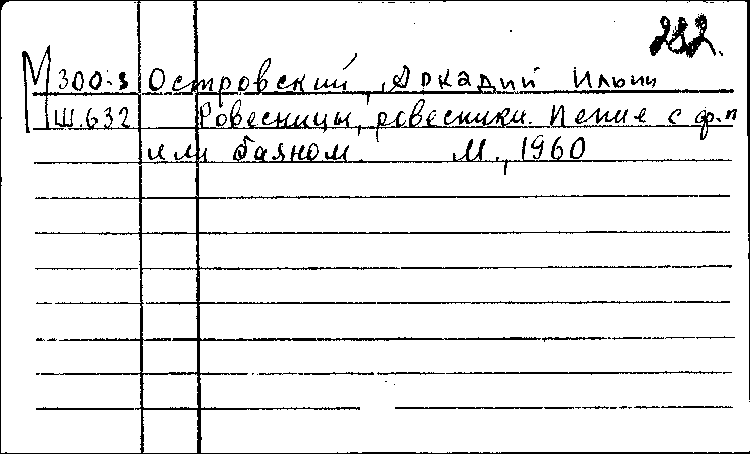 282.
М 300-3 Островский, Аркадий Ильич
Ш.632 Ровесницы, ровесники. Пение с ф.п
или баяном. М., 1960